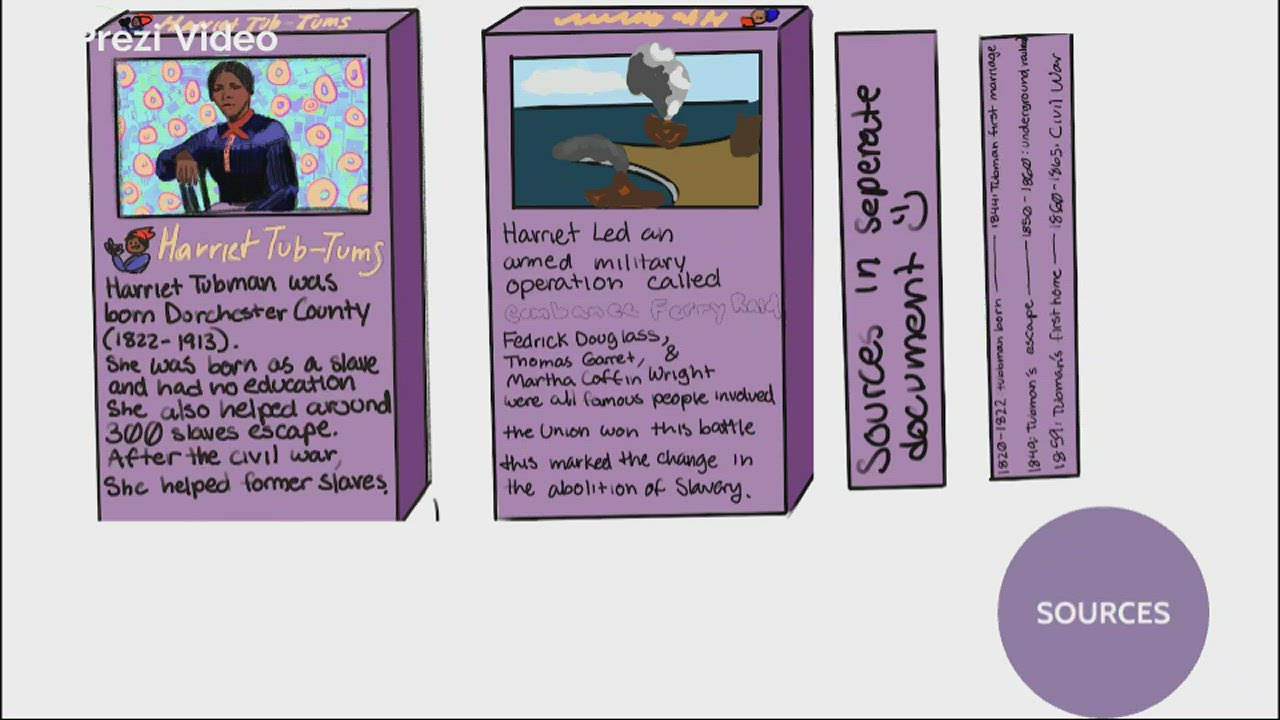 Prezi Video
Harriet Tub-Tums
Harriet Tub-Tums
Harriet Tubman was
born Dorchester County
(1822-1913).
She was born as a slave
and had no education
She also helped around
300 slaves escape.
After the civil war,
She helped former slaves.
Harriet Led an
armed military
operation called
Combahee Ferry Raid
Fedrick Douglass,
Thomas Garret, &
Martha Coffin Wright
were all famous people involved
the Union won this battle
this marked the change in
the abolition of Slavery.
Sources in seperate
document :)
1820-1822 tubbman born — 1844: Tubman first marriage
1849: Tubman's escape — 1850-1860: underground railroad
1859: Tubman's first home — 1860-1865: Civil War
SOURCES